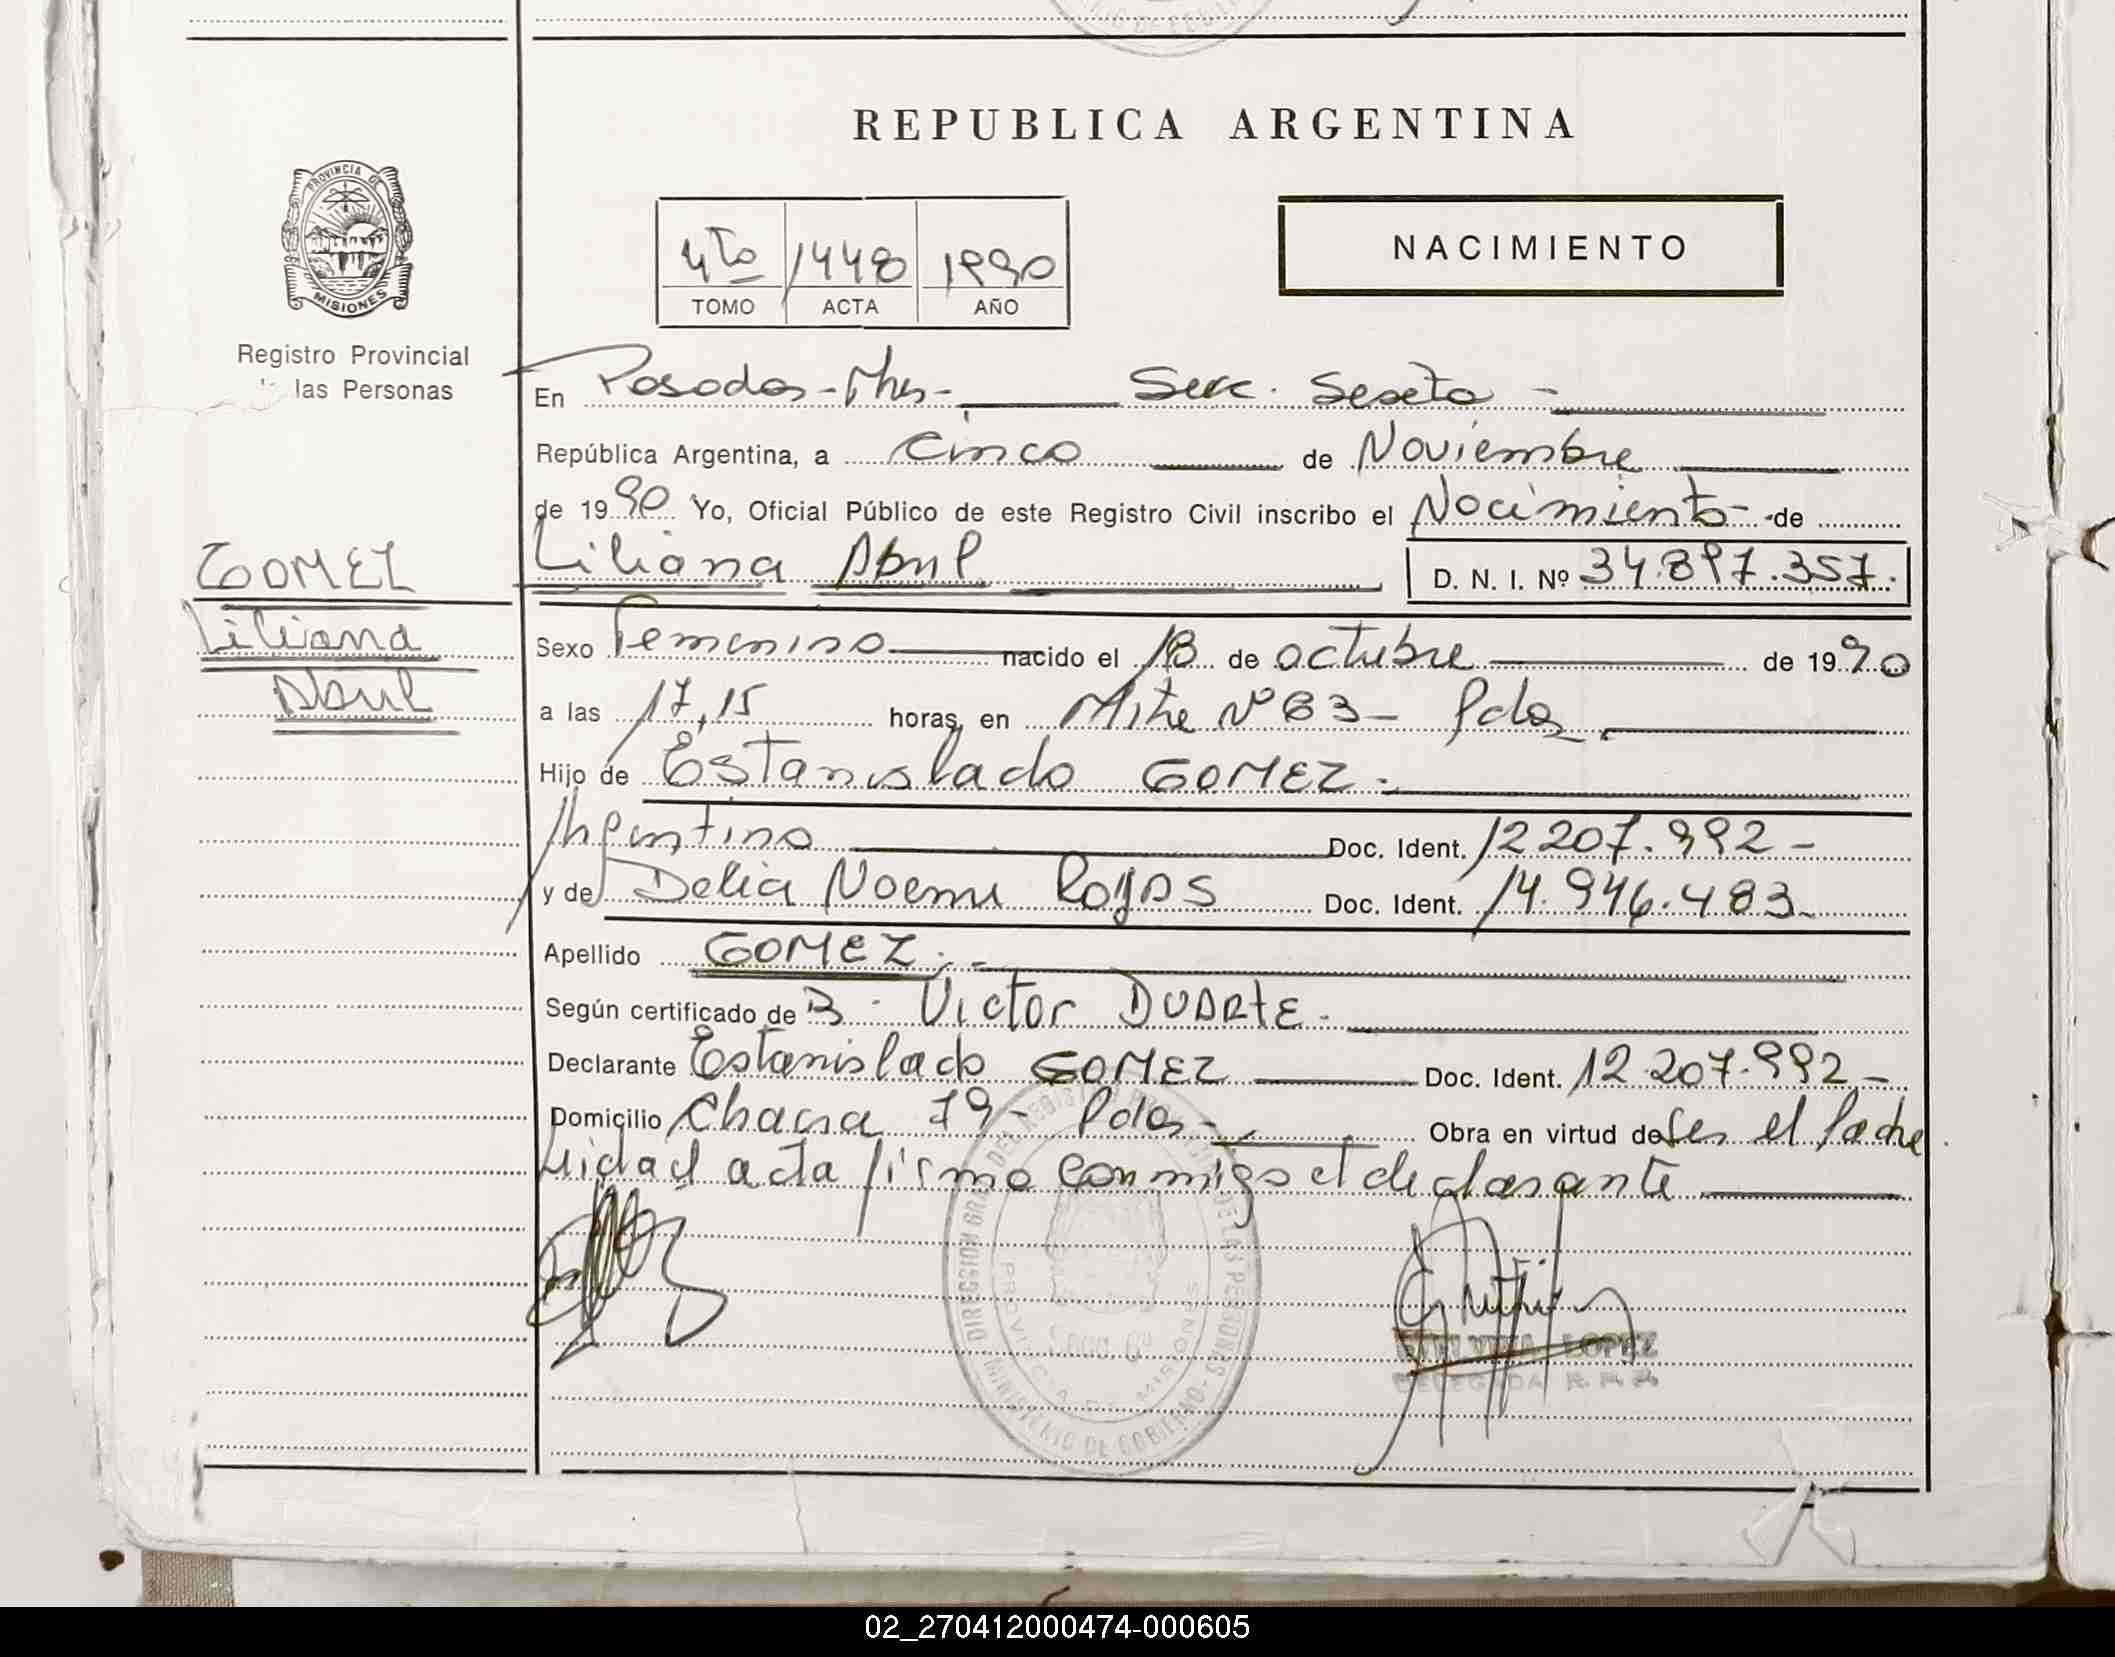 REPUBLICA ARGENTINA
PROVINCIA DE
MISIONES
Registro Provincial
las Personas
4to 1448 1990
TOMO ACTA AÑO
NACIMIENTO
En Posadas - Mnes - Secc. Sexta -
República Argentina, a Cinco de Noviembre
de 1990 Yo, Oficial Público de este Registro Civil inscribo el Nacimiento - de
GOMEZ
Liliana Abril
D. N. I. Nº 34.897.357.
Liliana
Abril
Sexo Femenino nacido el 18 de octubre de 1990
a las 17,15 horas, en Mitre Nº 83 - Pdas
Hijo de Estanislado GOMEZ.
Argentino Doc. Ident. 12207.992 -
y de Delia Noemi Rojas Doc. Ident. 14.946.483 -
Apellido GOMEZ. -
Según certificado de Victor DUARTE.
Declarante Estanislado GOMEZ Doc. Ident. 12.207.992 -
Domicilio Chacra 79 - Pdas - Obra en virtud de Ser el Padre
acta firma conmigo el declarante
DIRECCION GRAL. DEL REGISTRO PROVINCIAL DE LAS PERSONAS
MINISTERIO DE GOBIERNO
PROVINCIA DE MISIONES
Secc 6ª
LOPEZ
DELEGADA R.P.P.
02_270412000474-000605